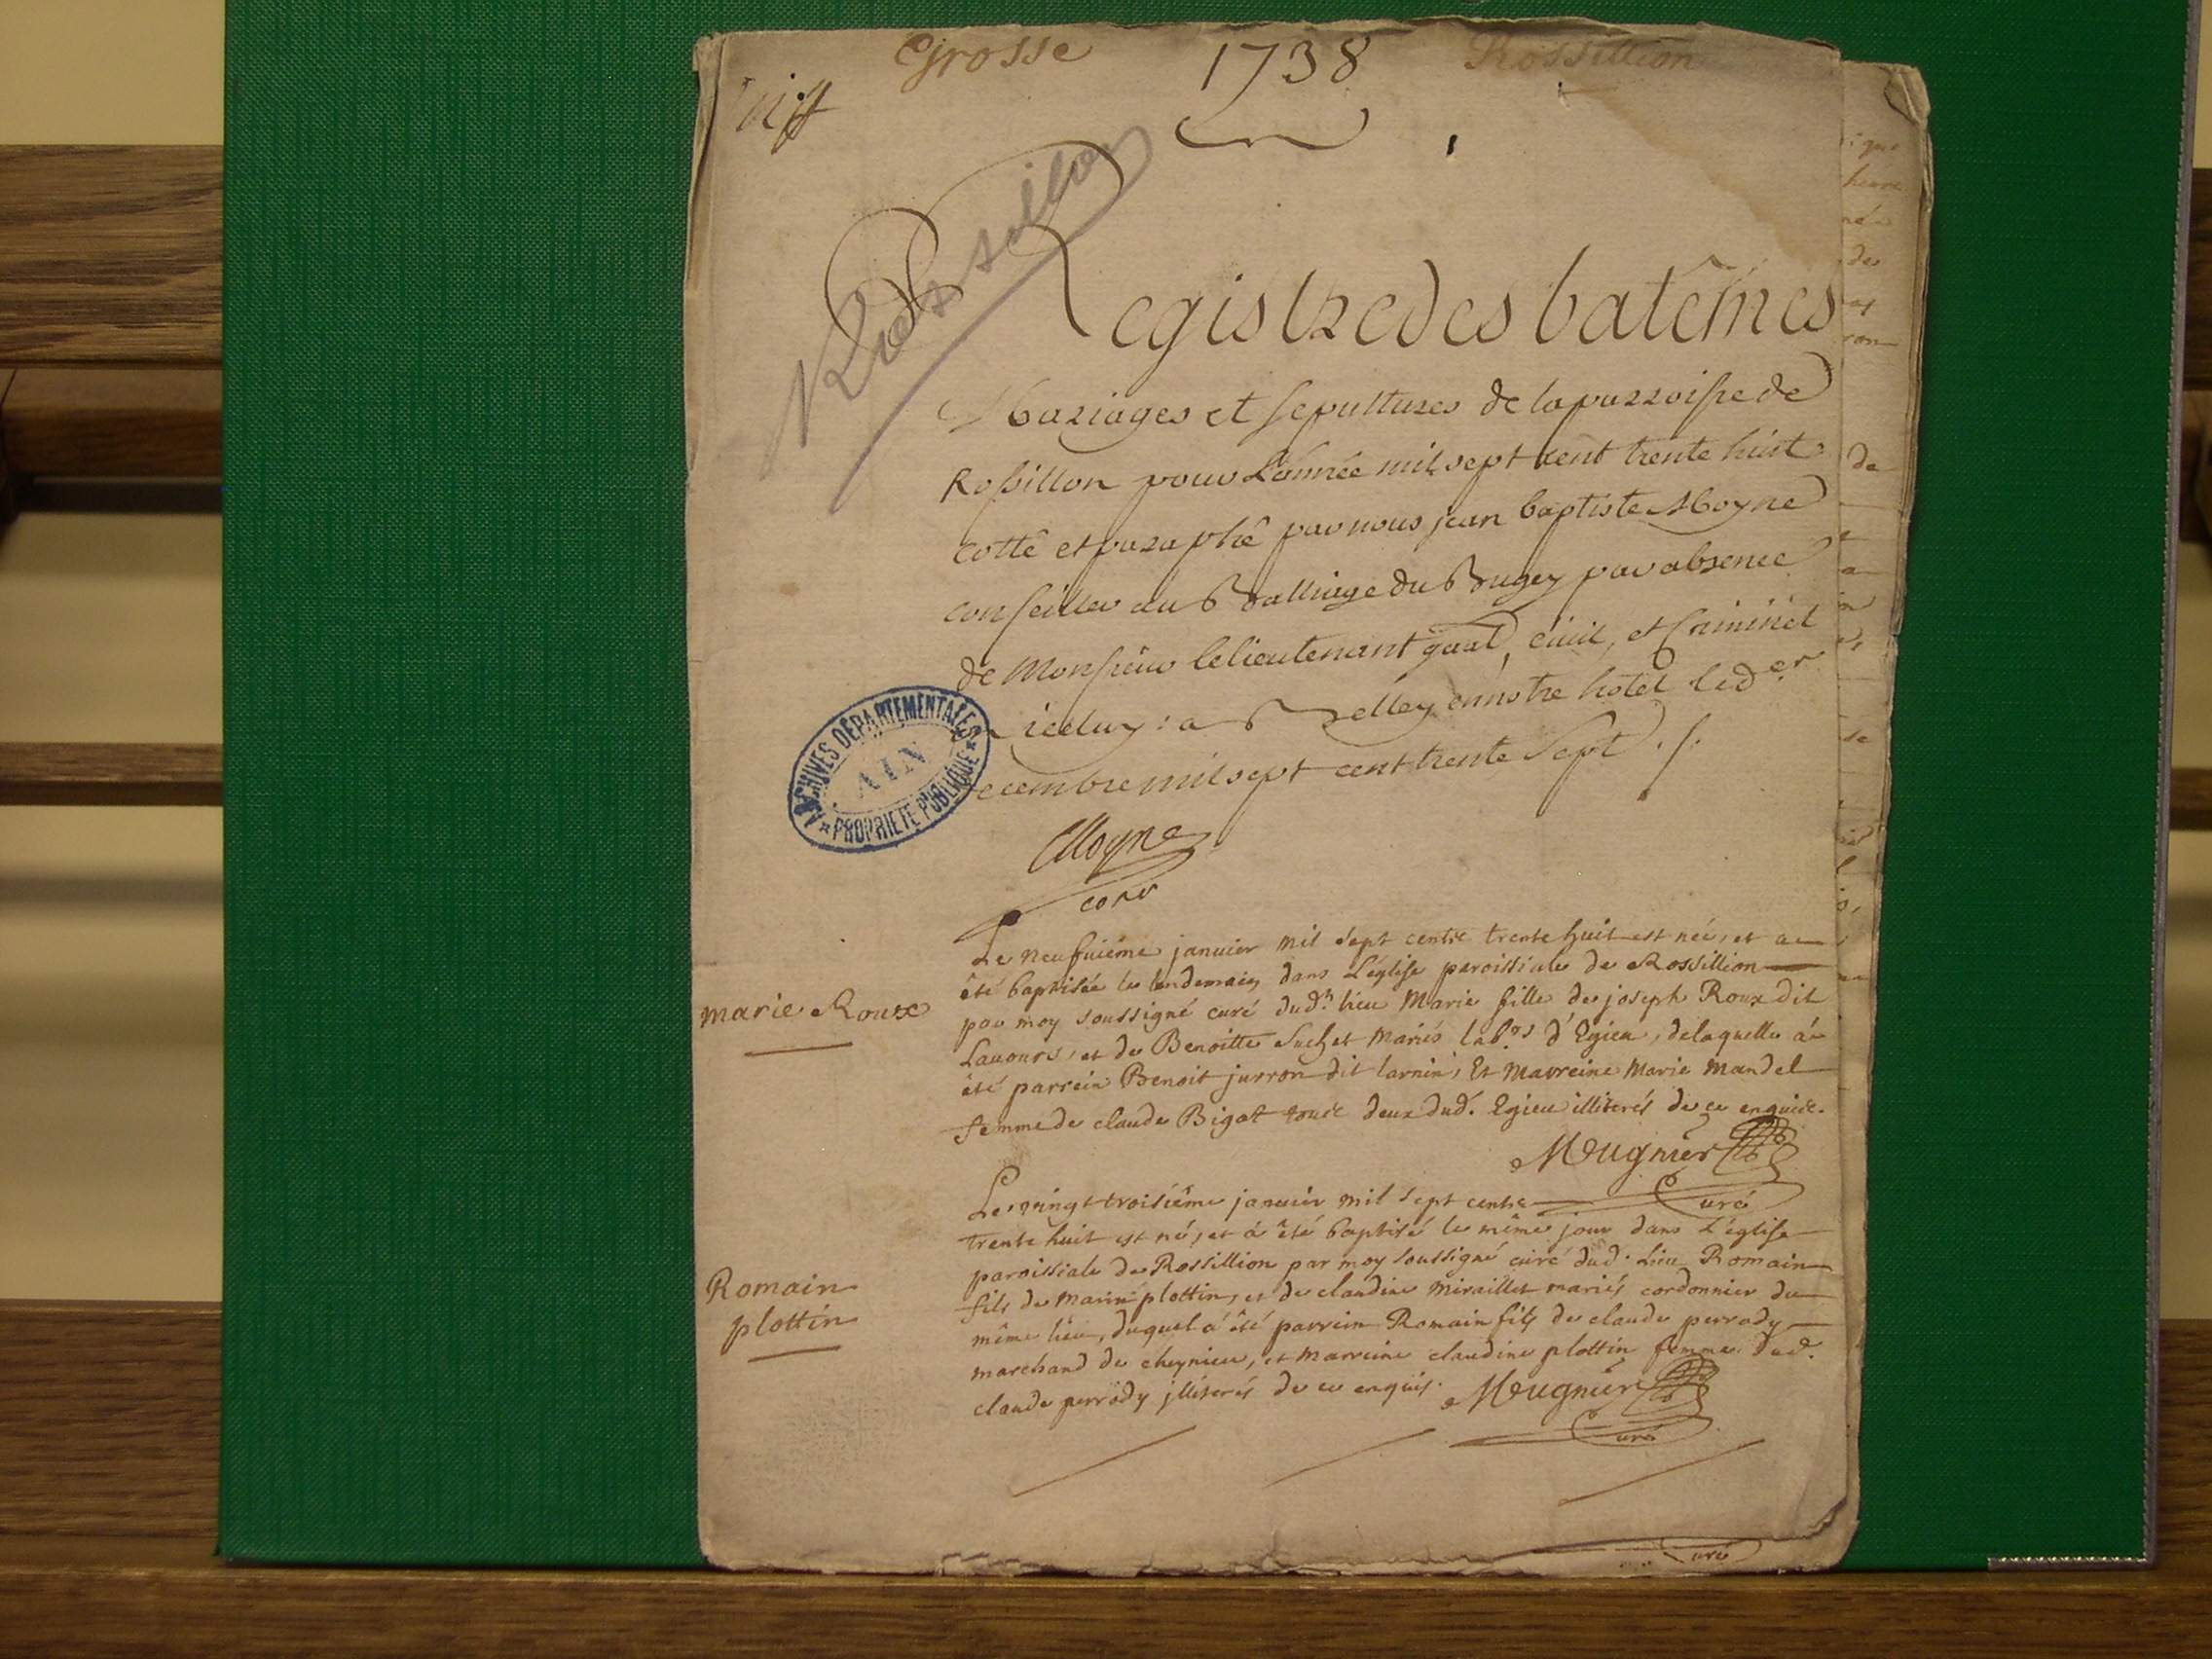 Grosse 1738 Rossillion
Rossillon
Registre des batêmes
Mariages et sepultures de la parroisse de
Rossillon pour Lannée mil sept cent trente huit
cottê et paraphê par nous jean baptiste Moyne
conseiller au Balliage du Bugey par absence
de Monsieur le lieutenant gnal, civil, et Criminel
icelluy : a Belley en nostre hotel le d.er
ecembre mil sept cent trente sept ./.
ARCHIVES DÉPARTEMENTALES
AIN
* PROPRIÉTÉ PUBLIQUE *
Moyne
Le neufuiême januier mil sept centz trente huit est née, et a
êté baptisée le lendemain dans L'église paroissiale de Rossillion
marie Roux
par moy soussigné curé dud.t lieu Marie fille de joseph Roux dit
Lauours, et de Benoitte Suchet mariés lab.rs d'Egieu, de laquelle á
êté parrein Benoit jurron dit larnin, Et marreine Marie Mandel
femme de claude Bigot tous deux dud. Egieu illiterés de ce enquis.
Meugnier
Curé
Le vingt troisiême januier mil sept centz
trente huit est né, et á êté baptisé le même jour dans L'église
paroissiale de Rossillion par moy soussigné curé dud. Lieu Romain
Romain
plottin
fils de marin plottin, et de claudine miraillet mariés cordonnier du
même lieu, duquel á êté parrein Romain fils de claude perrody
marchand de cheynieu, et marreine claudine plottin femme dud.
claude perrody jlliterés de ce enquis. Meugnier
Curé
curé